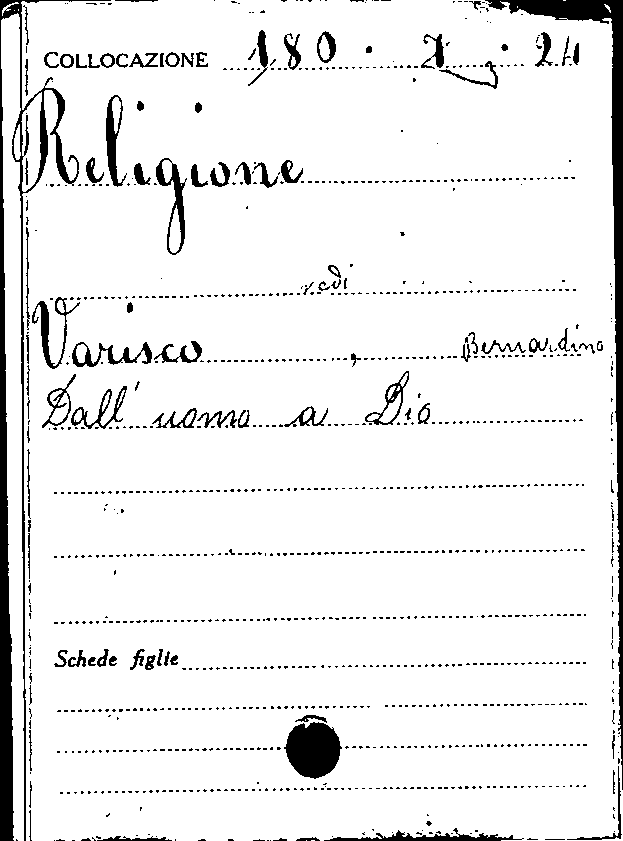 COLLOCAZIONE 180. . 24
Religione
vedi
Varisco, Bernardino
Dall'uomo a Dio
Schede figlie